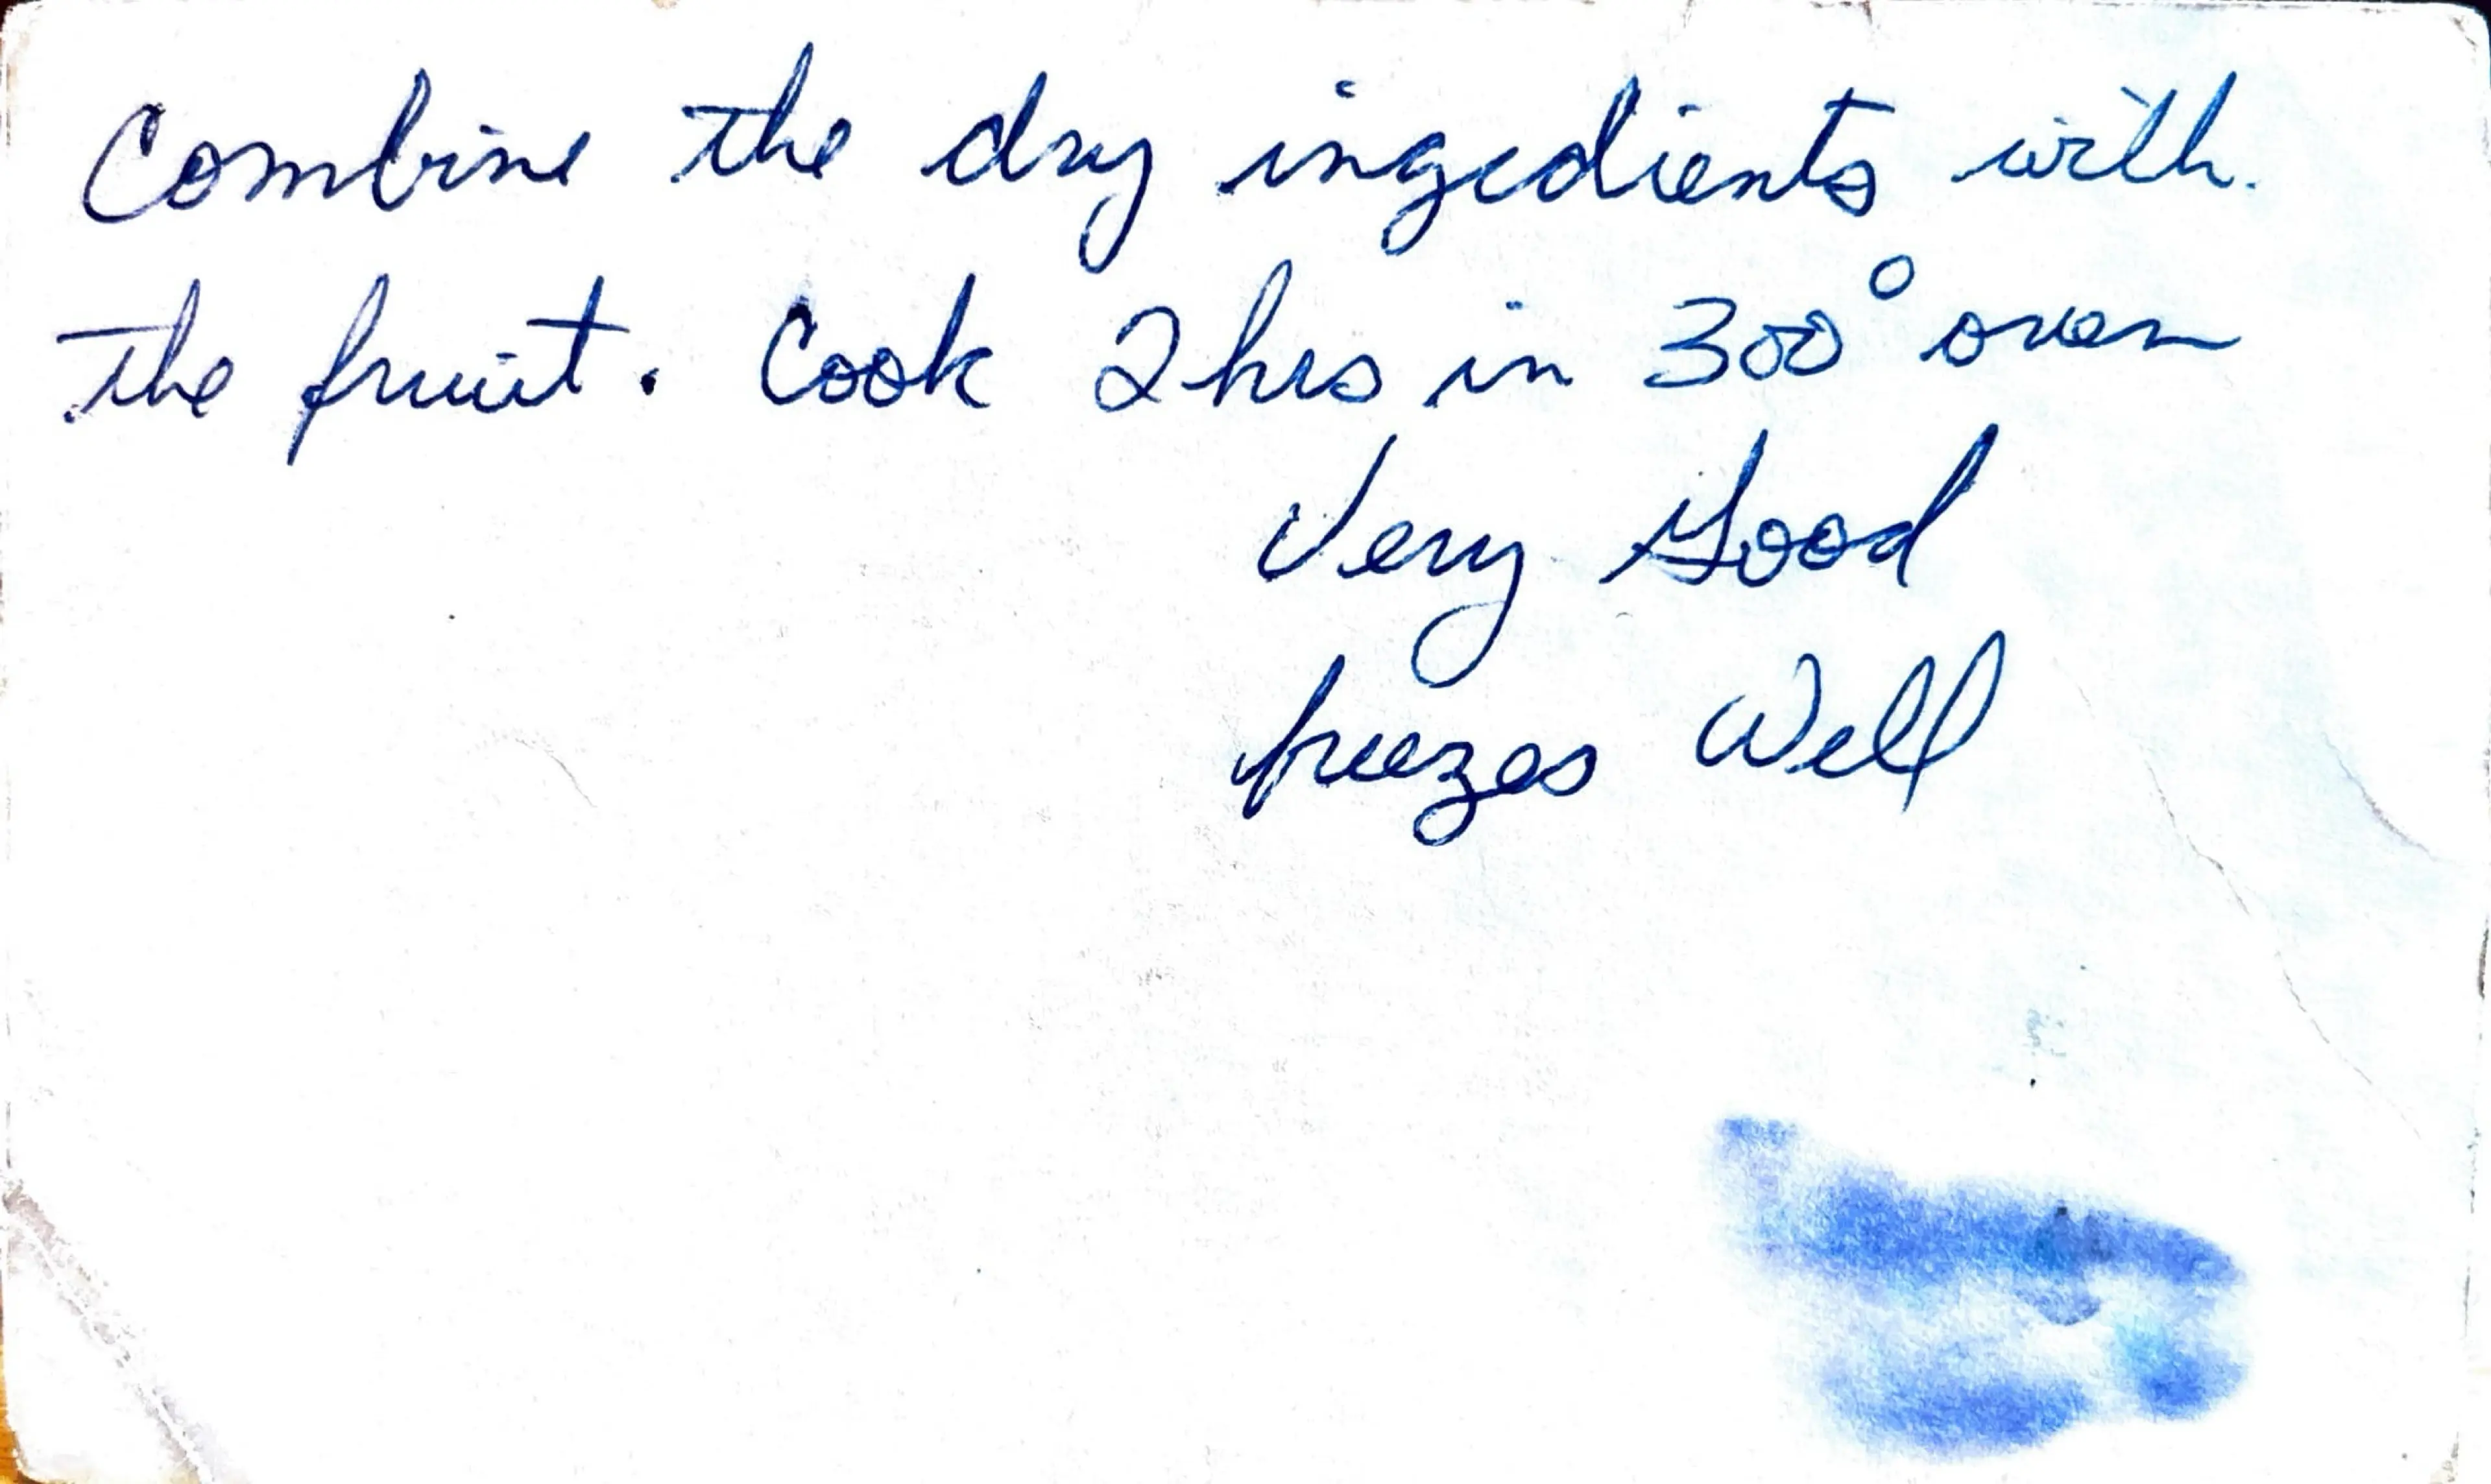 Combine the dry ingedients with
the fruit. Cook 2 hrs in 300° oven
Very Good
freezes Well